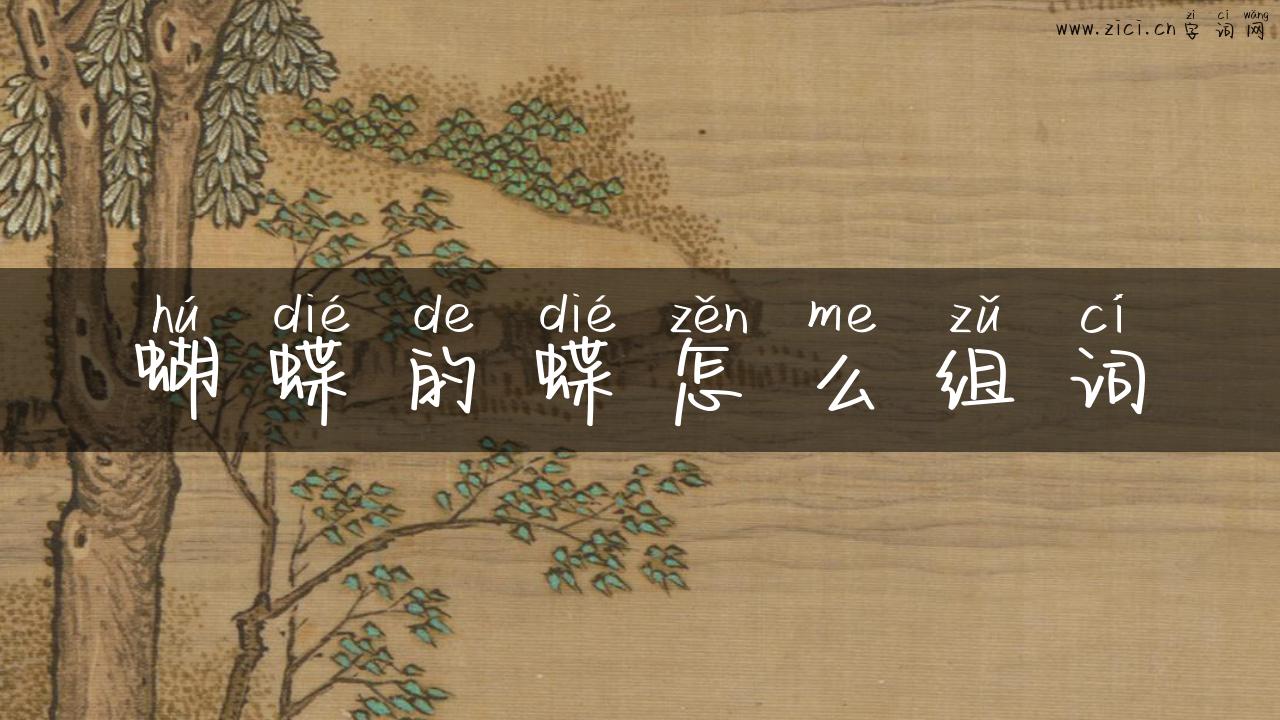 zì cí wǎng
www.zici.cn字词网
hú dié de dié zěn me zǔ cí
蝴蝶的蝶怎么组词